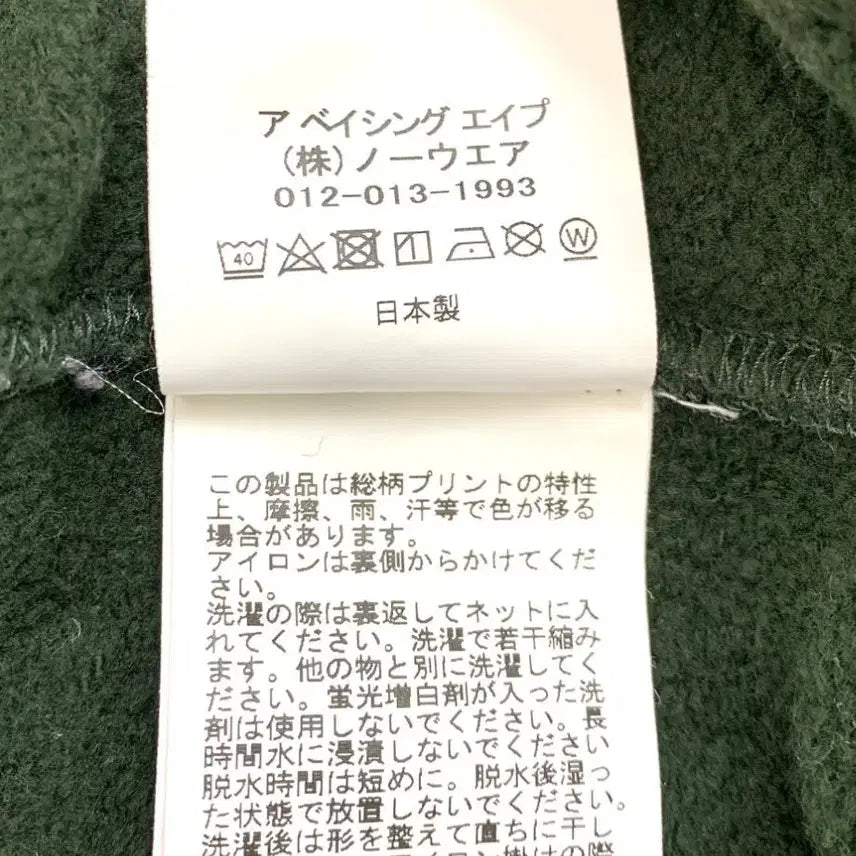 ア ベイシング エイプ
(株)ノーウエア
012-013-1993
40
W
日本製
この製品は総柄プリントの特性
上、摩擦、雨、汗等で色が移る
場合があります。
アイロンは裏側からかけてくだ
さい。
洗濯の際は裏返してネットに入
れてください。洗濯で若干縮み
ます。他の物と別に洗濯してく
ださい。蛍光増白剤が入った洗
剤は使用しないでください。長
時間水に浸漬しないでください
脱水時間は短めに。脱水後湿っ
た状態で放置しないでください。
洗濯後は形を整えて直ちに干し